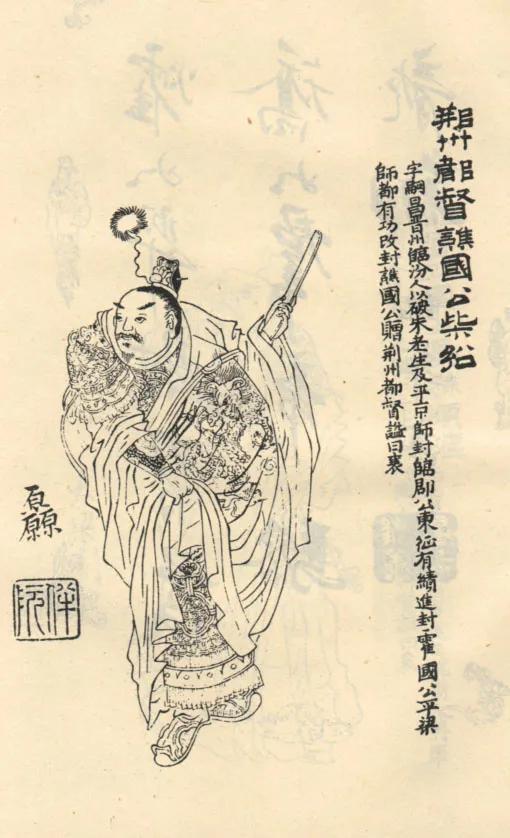 荊州都督譙國公柴紹
字嗣昌晉州臨汾人以破朱老生及平京師封臨郡公東征有績進封霍國公平梁
師都有功改封譙國公贈荊州都督謚曰襄
伴阮